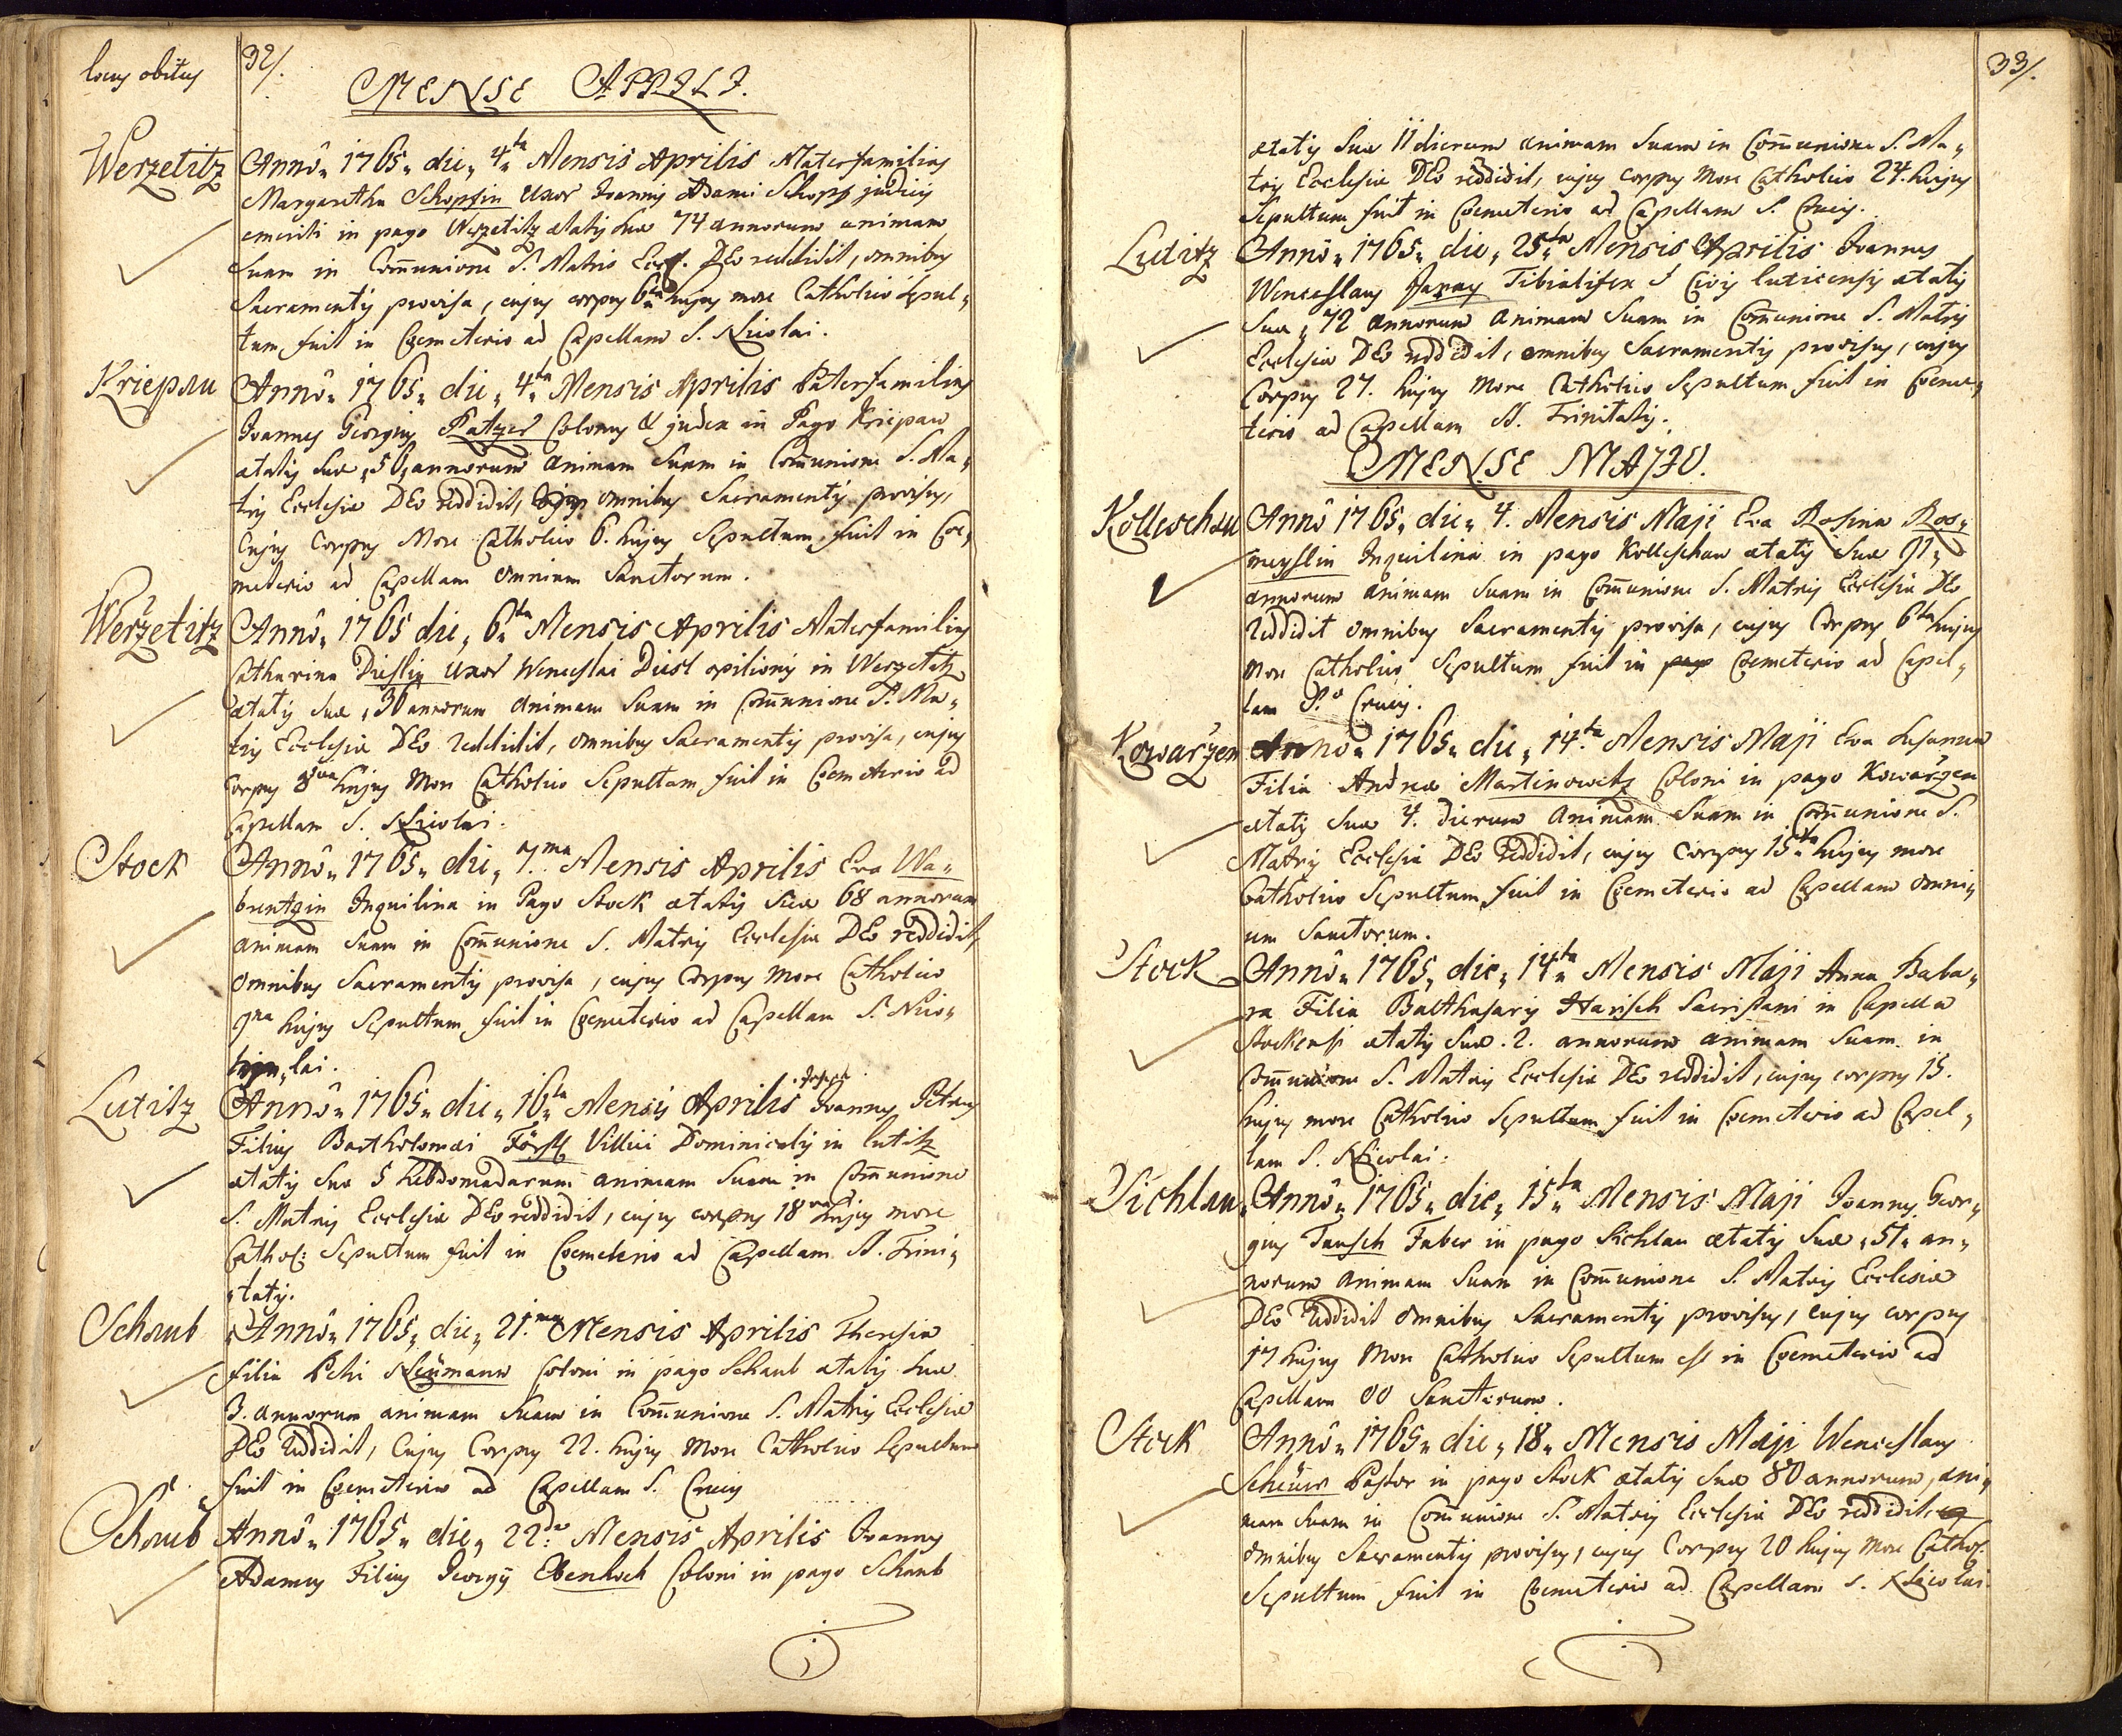 locus obitus
32/.
MENSE APRILI.
Werzetitz
Annô„ 1765„ die„ 4ta Mensis Aprilis Materfamilias
Margaretha Schopfin Uxor Joannis Adami Schopf judicis
emeriti in pago Werzetitz ætatis suæ 74 annorum animam
Suam in Com̄unione S. Matris Eccl. DEo reddidit, omnibus
Sacramentis provisa, cujus corpus 6ta hujus more Catholico Sepul„
tum fuit in Coemeterio ad Capellam S. Nicolai.
Kriepau
Annô„ 1765„ die„ 4ta Mensis Aprilis Paterfamilias
Joannes Georgius Ratzer Colonus & judex in Pago Kriepau
ætatis suæ „56„ annorum animam Suam in Com̄unione S. Ma„
tris Ecclesiæ DEo reddidit, omnibus Sacramentis provisus,
Cujus Corpus More Catholico 6. hujus Sepultum fuit in Coe„
meterio ad Capellam Omnium Sanctorum.
Werzetitz
Annô„ 1765 die„ 6ta Mensis Aprilis Materfamilias
Catharina Dieslin Uxor Wenceslai Diesl opilionis in Werzetitz
ætatis suæ „36 annorum animam Suam in Com̄unione S. Ma„
tris Ecclesiæ DEo reddidit, omnibus Sacramentis provisa, cujus
Corpus 8va hujus More Catholico Sepultum fuit in Coemeterio ad
Capellam S. Nicolai.
Stock
Annô„ 1765„ die„ 7.ma Mensis Aprilis Eva Wa„
brentzin Inquilina in Pago Stock ætatis suæ 68 annorum
animam Suam in Com̄unione S. Matris Ecclesiæ DEo reddidit,
Omnibus Sacramentis provisa, cujus Corpus More Catholico
9na hujus Sepultum fuit in Coemeterio ad Capellam S. Nico„
lai.
Lutitz
Annô„ 1765„ die„ 16ta Mensis Aprilis Joseph Joannes Petrus
Filius Bartholomæi Försl Villici Dominicalis in lutitz
ætatis suæ 5 hebdomadarum animam Suam in Com̄unione
S. Matris Ecclesiæ DEo reddidit, cujus corpus 18va hujus more
Cathol: Sepultum fuit in Coemeterio ad Capellam SS. Trini„
„tatis.
Schaub
Annô„ 1765„ die„ 21.ma Mensis Aprilis Theresia
filia Petri Neümann Coloni in pago Schaub ætatis suæ
3. annorum animam Suam in Com̄unione S. Matris Ecclesiæ
DEo reddidit, Cujus Corpus 22. hujus More Catholico Sepultum
fuit in Coemeterio ad Capellam S. Crucis
Schaub
Annô„ 1765„ die„ 22da Mensis Aprilis Joannes
Adamus Filius Georgÿ Ebenhoch Coloni in pago Schaub
33/.
ætatis Suæ 11 dierum animam Suam in Com̄unione S. Ma„
tris Ecclesiæ DEo reddidit, cujus corpus More Catholico 24. hujus
Sepultum fuit in Coemeterio ad Capellam S. Crucis.
Lutitz
Annô„ 1765„ die„ 25ta Mensis Aprilis Joannes
Wenceslaus Tibialifex & Civis luticensis ætatis
Suæ „72 annorum animam Suam in Com̄unione S. Matris
Ecclesiæ DEo reddidit, omnibus Sacramentis provisus, cujus
Corpus 27. hujus More Catholico Sepultum fuit in Coeme„
terio ad Capellam SS. Trinitatis.
MENSE MAJO.
Kolleschau
Annô 1765„ die„ 4. Mensis Maji Eva Rosina Ros„
meyslin Inquilina in pago Kolleschau ætatis suæ 91„
annorum animam Suam in Com̄unione S. Matris Ecclesiæ DEo
reddidit omnibus Sacramentis provisa, cujus Corpus 6ta hujus
More Catholico Sepultum fuit in Coemeterio ad Capel„
lam S. Crucis.
Kowařzen
Annô„ 1765„ die„ 14ta Mensis Maji Eva Susanna
Filia Andreæ Martinowitz Coloni in pago Kowařzen
ætatis suæ 4. dierum animam Suam in Com̄unione S.
Matris Ecclesiæ DEo reddidit, cujus Corpus 15ta hujus more
Catholico Sepultum fuit in Coemeterio ad Capellam Omni„
um Sanctorum.
Stock
Annô„ 1765„ die„ 14ta Mensis Maji Anna Baba„
ra Filia Balthasaris Harisch Sacristani in Capella
Stockensi ætatis Suæ. 2. annorum animam Suam in
Com̄unione S. Matris Ecclesiæ DEo reddidit, cujus corpus 15.
hujus more Catholico Sepultum fuit in Coemeterio ad Capel„
lam S. Nicolai.
Sichlau
Annô„ 1765„ die„ 15ta Mensis Maji Joannes Geor„
gius Tausch Faber in pago Sichlau ætatis Suæ „51„ an„
norum animam Suam in Com̄unione S. Matris Ecclesiæ
DEo reddidit Omnibus Sacramentis provisus, cujus corpus
17 hujus More Catholico Sepultum est in Coemeterio ad
Capellam OO Sanctorum.
Stock
Annô„ 1765„ die„ 18„ Mensis Maji Wenceslaus
Scheüer Pastor in pago Stock ætatis Suæ 80 annorum, ani„
mam Suam in Com̄unione S. Matris Ecclesiæ DEo reddidit,
omnibus Sacramentis provisus, cujus Corpus 20 hujus More Cathol.
Sepultum fuit in Coemeterio ad Capellam S. Nicolai